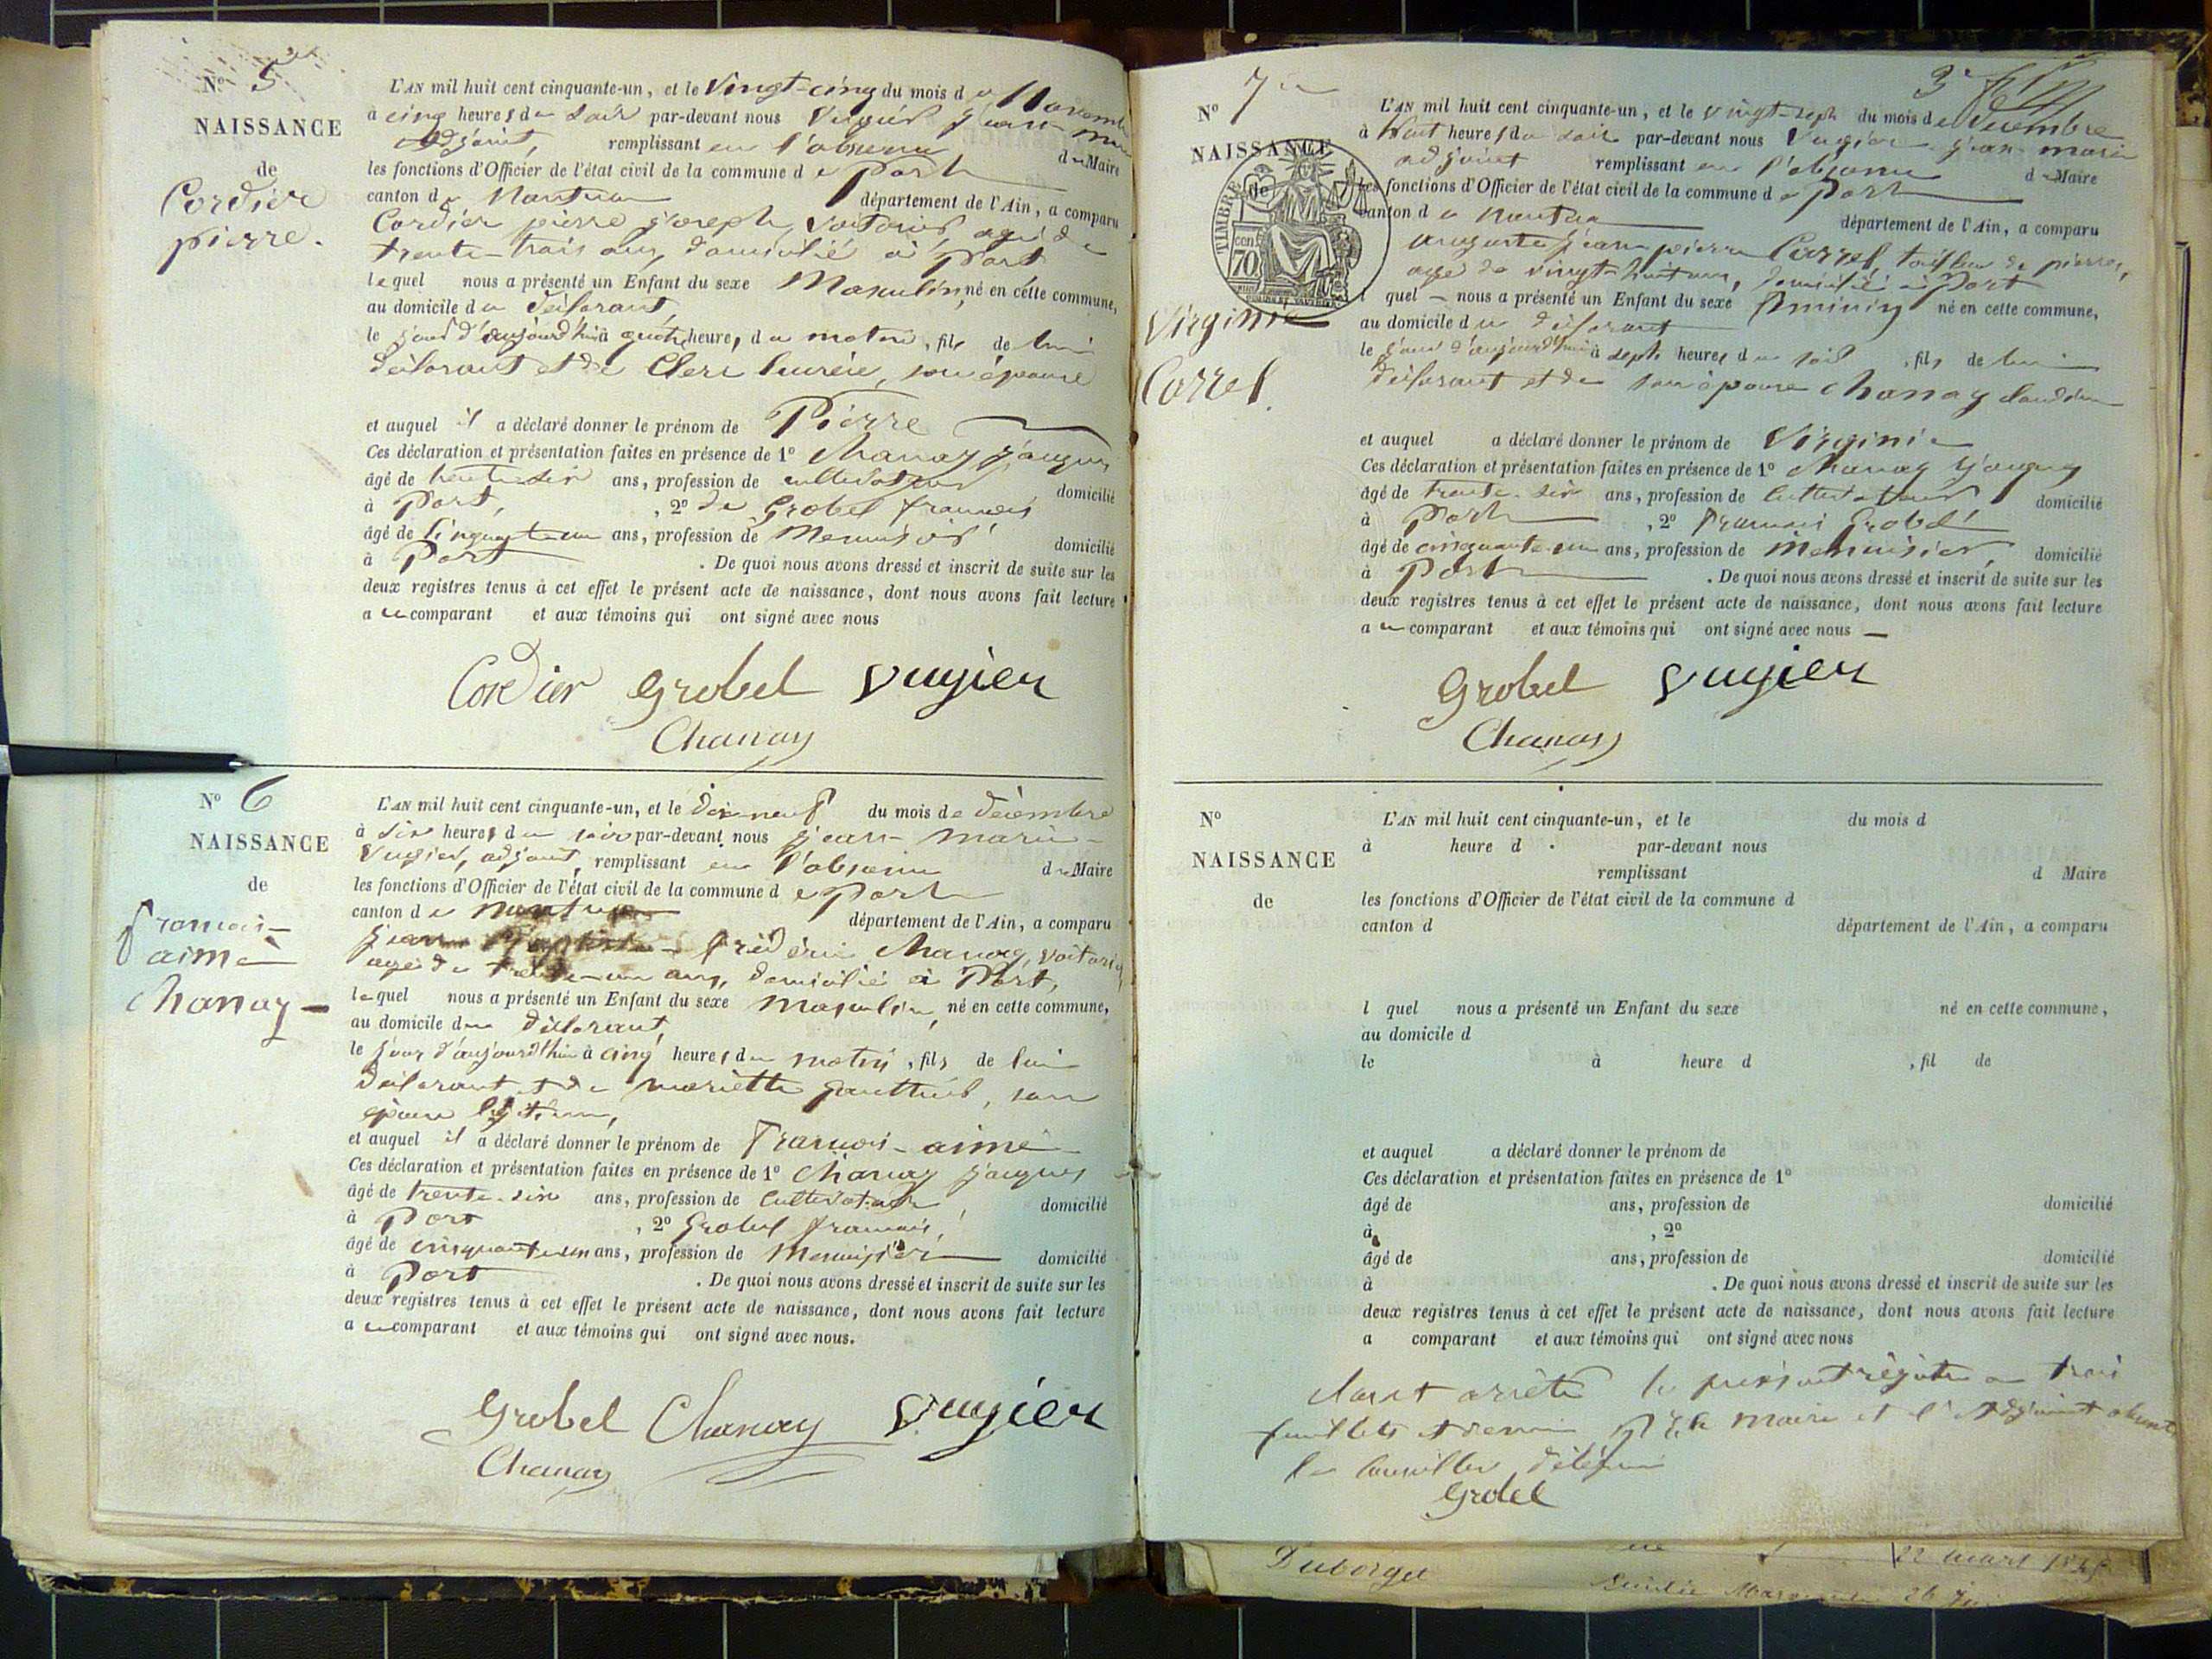 N° 5
NAISSANCE
de
Cordier
pierre.
L'AN mil huit cent cinquante-un, et le Vingt-cinq du mois de Novembre
à cinq heures du soir par-devant nous Vugier jean marie
adjoint, remplissant en l'absence du Maire
les fonctions d'Officier de l'état civil de la commune de Port
canton de Nantua département de l'Ain, a comparu
Cordier pierre joseph, voiturier, agé de
trente-trois ans, domicilié à Port
lequel nous a présenté un Enfant du sexe Masculin, né en cette commune,
au domicile du déclarant,
le jour d'aujourd'hui à quatre heures du matin, fils de lui
déclarant et de Clerc son épouse
et auquel il a déclaré donner le prénom de Pierre
Ces déclaration et présentation faites en présence de 1° Chanay jacques
âgé de trente-six ans, profession de cultivateur domicilié
à Port, , 2° de Grobel francois
âgé de cinquante-un ans, profession de Menuisier domicilié
à Port . De quoi nous avons dressé et inscrit de suite sur les
deux registres tenus à cet effet le présent acte de naissance, dont nous avons fait lecture
au comparant et aux témoins qui ont signé avec nous
Cordier Grobel Vugier
Chanay
N° 6
NAISSANCE
de
francois-
aimé
Chanay
L'AN mil huit cent cinquante-un, et le dix-neuf du mois de décembre
à six heures du soir par-devant nous jean marie
Vugier, adjoint, remplissant en l'absence du Maire
les fonctions d'Officier de l'état civil de la commune de Port
canton de nantua département de l'Ain, a comparu
jean Baptiste frédéric Chanay, voiturier
agé de trente-un ans, domicilié à Port,
lequel nous a présenté un Enfant du sexe masculin, né en cette commune,
au domicile du déclarant,
le jour d'aujourd'hui à cinq heures du matin, fils de lui
déclarant et de mariette gauthier, son
épouse légitime,
et auquel il a déclaré donner le prénom de francois-aimé
Ces déclaration et présentation faites en présence de 1° Chanay jacques
âgé de trente-six ans, profession de cultivateur, domicilié
à Port , 2° Grobel francois,
âgé de cinquante-un ans, profession de Menuisier domicilié
à Port . De quoi nous avons dressé et inscrit de suite sur les
deux registres tenus à cet effet le présent acte de naissance, dont nous avons fait lecture
au comparant et aux témoins qui ont signé avec nous.
Grobel Chanay Vugier
Chanay
N° 7
3e
NAISSANCE
de
TIMBRE
cen
70
Virginie
Carrel.
L'AN mil huit cent cinquante-un, et le vingt-sept du mois de décembre
à huit heures du soir par-devant nous Vugier jean marie
adjoint remplissant en l'absence du Maire
les fonctions d'Officier de l'état civil de la commune de Port
canton de nantua département de l'Ain, a comparu
auguste jean pierre Carrel tailleur de pierres,
agé de vingt-huit ans, domicilié à Port
l quel nous a présenté un Enfant du sexe féminin né en cette commune,
au domicile du déclarant
le jour d'aujourd'hui à sept heures du soir , fils de lui
déclarant et de son épouse Chanay claudine
et auquel a déclaré donner le prénom de Virginie
Ces déclaration et présentation faites en présence de 1° Chanay jacques
âgé de trente-six ans, profession de cultivateur domicilié
à Port , 2° francois Grobel
âgé de cinquante-un ans, profession de menuisier, domicilié
à Port . De quoi nous avons dressé et inscrit de suite sur les
deux registres tenus à cet effet le présent acte de naissance, dont nous avons fait lecture
au comparant et aux témoins qui ont signé avec nous
Grobel Vugier
Chanay
N°
NAISSANCE
de
L'AN mil huit cent cinquante-un, et le du mois d
à heure d par-devant nous
remplissant d Maire
les fonctions d'Officier de l'état civil de la commune d
canton d département de l'Ain, a comparu
l quel nous a présenté un Enfant du sexe né en cette commune,
au domicile d
le à heure d , fil de
et auquel a déclaré donner le prénom de
Ces déclaration et présentation faites en présence de 1°
âgé de ans, profession de domicilié
à , 2°
âgé de ans, profession de domicilié
à . De quoi nous avons dressé et inscrit de suite sur les
deux registres tenus à cet effet le présent acte de naissance, dont nous avons fait lecture
a comparant et aux témoins qui ont signé avec nous
Clos et arrêté le présent régistre a trois
feuillets et demi pr le Maire et l'adjoint absents
le Conseiller délégué
Grobel
Duborget 22 mars